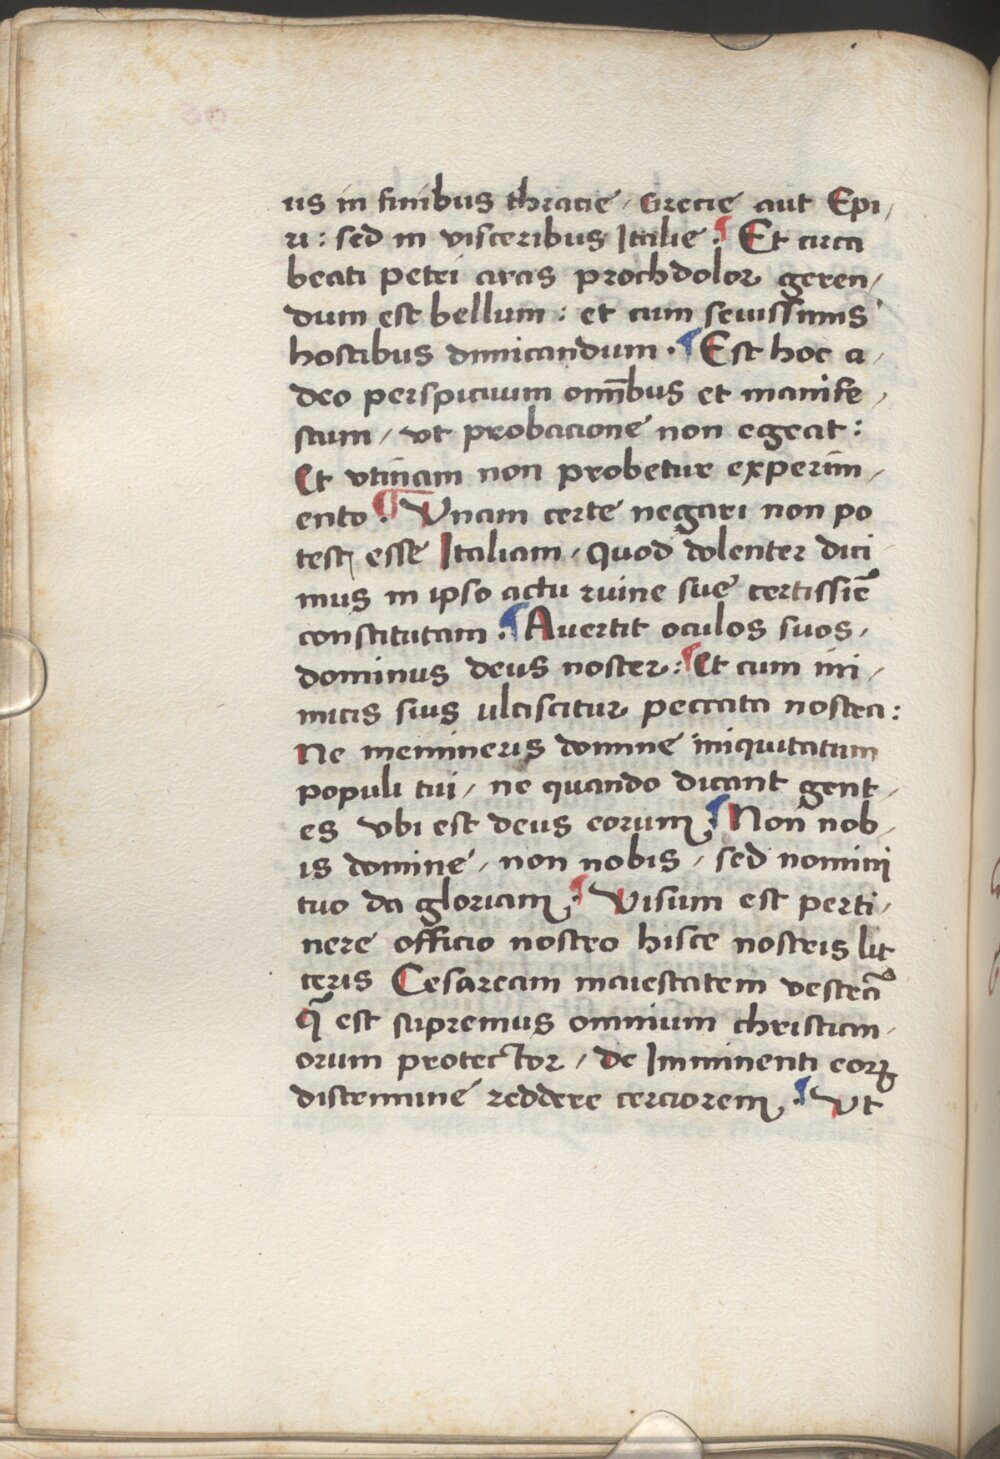 us in finibus thracie / Grecie aut Epi /
ri : sed in visceribus Italie . ¶ Et circa
beati petri aras prochdolor geren /
dum est bellum : et cum sevissimis
hostibus dimicandum . ¶ Est hoc a /
deo perspicuum om̄ibus et manife /
stum / ut probacione non egeat :
Et utinam non probetur experim /
ento . ¶ Unam certe negari non po
test esse Italiam / quod dolenter dici
mus in ipso actu ruine sue certissiē
constitutam . ¶ Avertit oculos suos /
dominus deus noster : ¶ Et cum ini /
micis suis ulciscitur peccata nostra :
Ne memineris domine iniquitatum
populi tui / ne quando dicant gent /
es ubi est deus eorum . ¶ Non nob /
is domine / non nobis / sed nomini
tuo da gloriam . ¶ Visum est perti /
nere officio nostro hisce nostris lit
teris Cesaream maiestatem vestrā
q̄ est supremus omnium christian /
orum protector / de Imminenti eorꝝ
discrimine reddere cerciorem . ¶ Ut